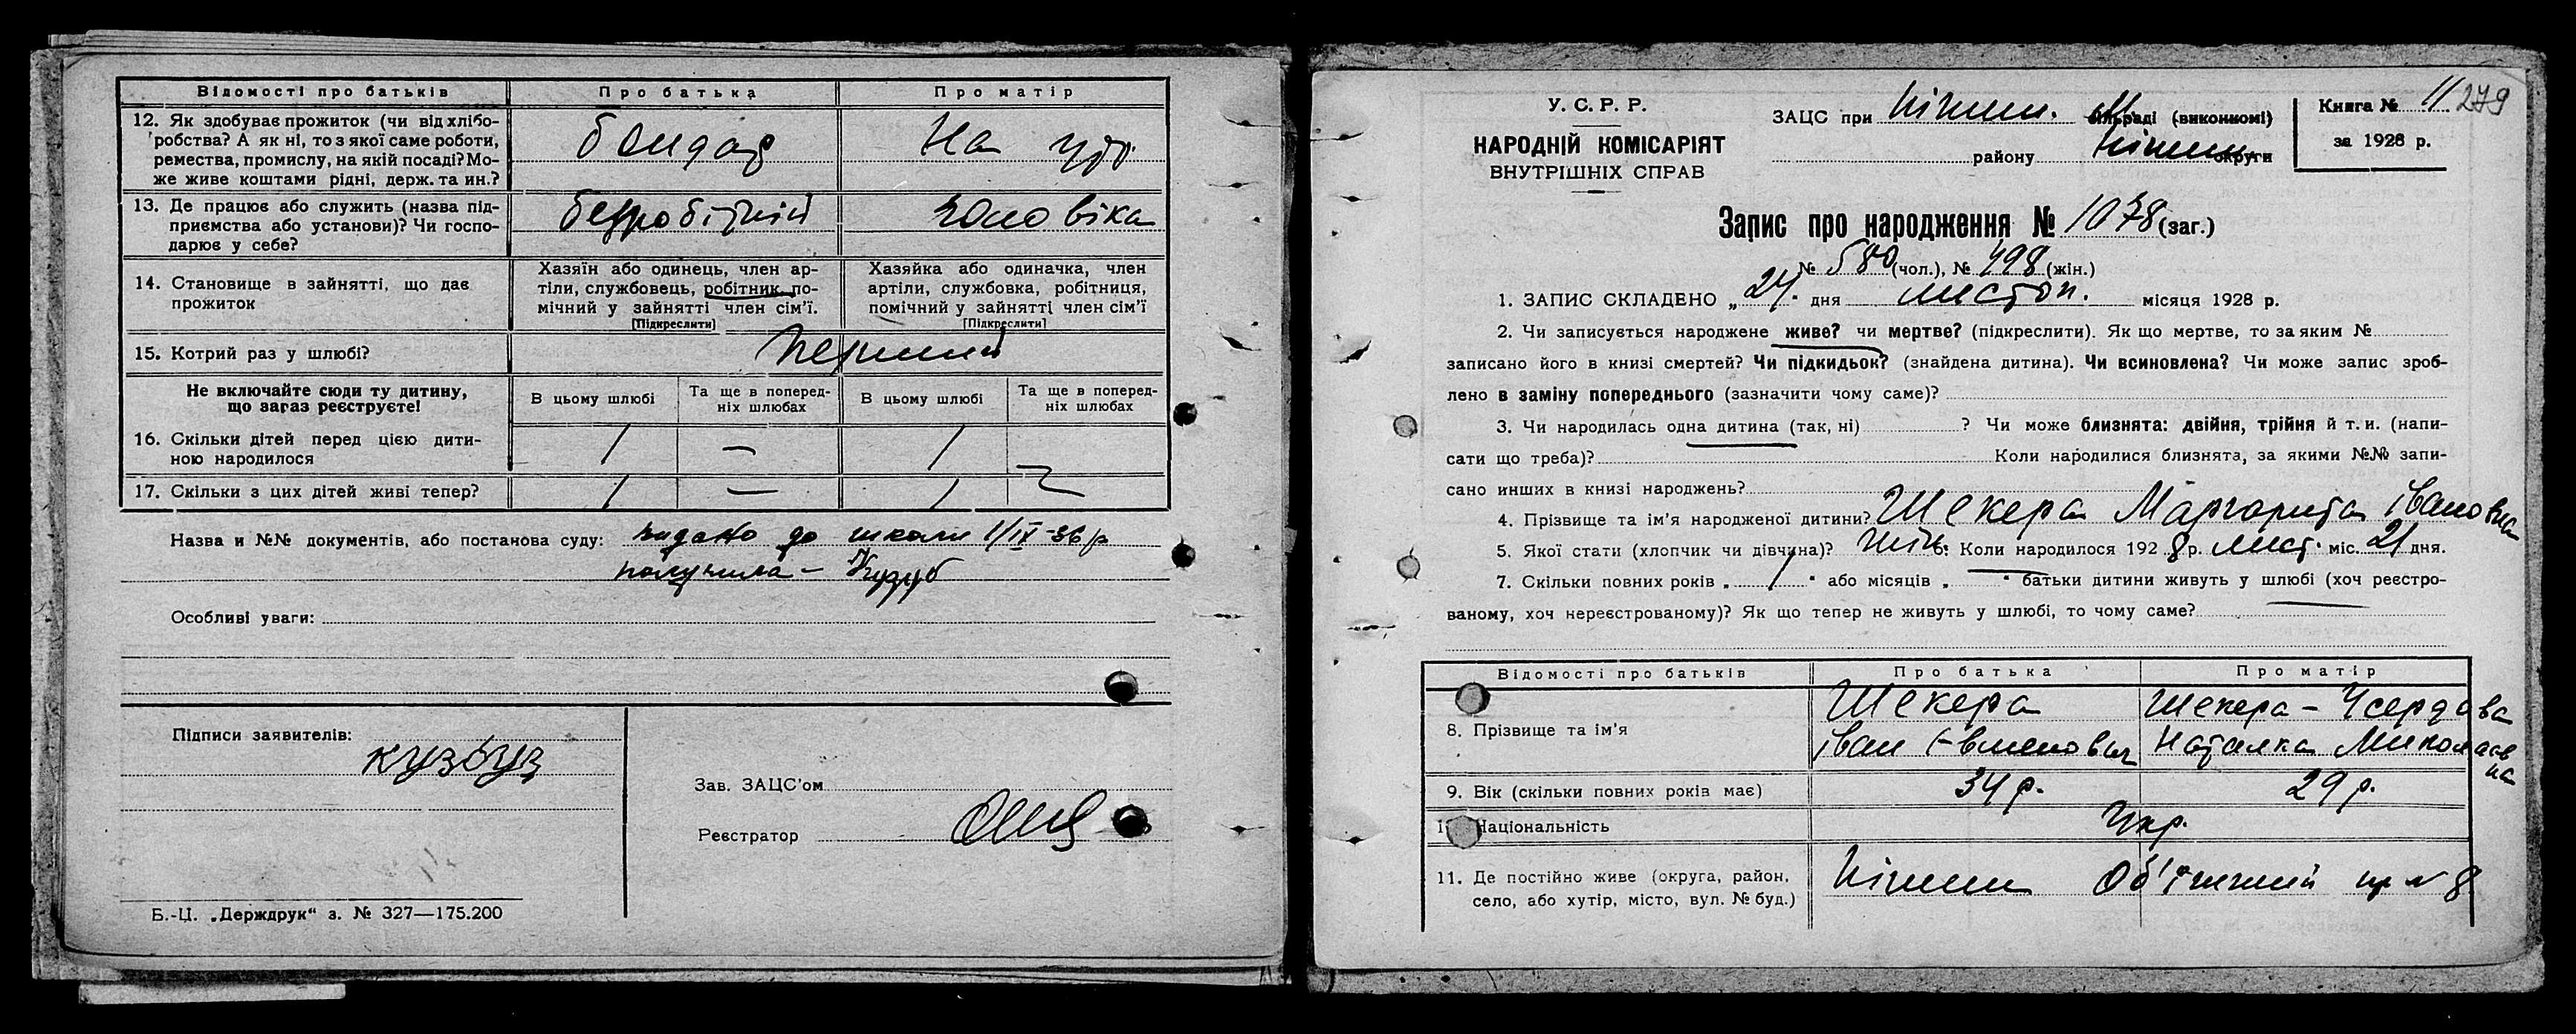 Відомості про батьків Про батька Про матір
12. Як здобуває прожиток (чи від хлібо-
робства? А як ні, то з якої саме роботи,
ремества, промислу, на якій посаді? Мо-
же живе коштами рідні, держ. та ин.?
бондар На утр.
13. Де працює або служить (назва під-
приємства або установи)? Чи госпо-
дарює у себе?
безробітний чоловіка
14. Становище в зайнятті, що дає
прожиток
Хазяїн або одинець, член ар-
тіли, службовець, робітник, по-
мічний у зайнятті член сім'ї.
[Підкреслити]
Хазяйка або одиначка, член
артіли, службовка, робітниця,
помічний у зайнятті член сім'ї
[Підкреслити]
15. Котрий раз у шлюбі? перший
Не включайте сюди ту дитину,
що загаз реєструєте!
В цьому шлюбі
Та ще в поперед-
ніх шлюбах
В цьому шлюбі
Та ще в поперед-
ніх шлюбах
16. Скільки дітей перед цією дити-
ною народилося
1 — 1
17. Скільки з цих дітей живі тепер? 1 — 1
Назва и №№ документів, або постанова суду: видано до школи 1/IX-36 р
получила –
Особливі уваги:
Підписи заявителів:
Зав. ЗАЦС'ом
Реєстратор
Б.-Ц. „Держдрук“ з. № 327—175.200
У. С. Р. Р.
НАРОДНІЙ КОМІСАРІЯТ
ВНУТРІШНІХ СПРАВ
ЗАЦС при Ніжин. сільраді (виконкомі)
району Ніжин округи
Книга № 11 279
за 1928 р.
Запис про народження № 1078 (заг.)
№ 580 (чол.), № 498 (жін.)
1. ЗАПИС СКЛАДЕНО „24. дня листоп. місяця 1928 р.
2. Чи записується народжене живе? чи мертве? (підкреслити). Як що мертве, то за яким №
записано його в книзі смертей? Чи підкидьок? (знайдена дитина). Чи всиновлена? Чи може запис зроб-
лено в заміну попереднього (зазначити чому саме)?
3. Чи народилась одна дитина (так, ні) ? Чи може близнята: двійня, трійня й т. и. (напи-
сати що треба)? Коли народилися близнята, за якими №№ запи-
сано инших в книзі народжень?
4. Прізвище та ім'я народженої дитини? Шекера Маргарита Івановна
5. Якої стати (хлопчик чи дівчина)? жін. 6. Коли народилося 192 8 р. лист. міс. 21 дня.
7. Скільки повних років „ 1 " або місяців „ " батьки дитини живуть у шлюбі (хоч реєстро-
ваному, хоч нереєстрованому)? Як що тепер не живуть у шлюбі, то чому саме?
Відомості про батьків Про батька Про матір
8. Прізвище та ім'я
Шекера Шекера –
Іван Євменович Наталка Миколаєвна
9. Вік (скільки повних років має) 34 р. 29 р.
10. Національність Укр.
11. Де постійно живе (округа, район,
село, або хутір, місто, вул. № буд.)
Ніжин Об'їзжий пр № 8